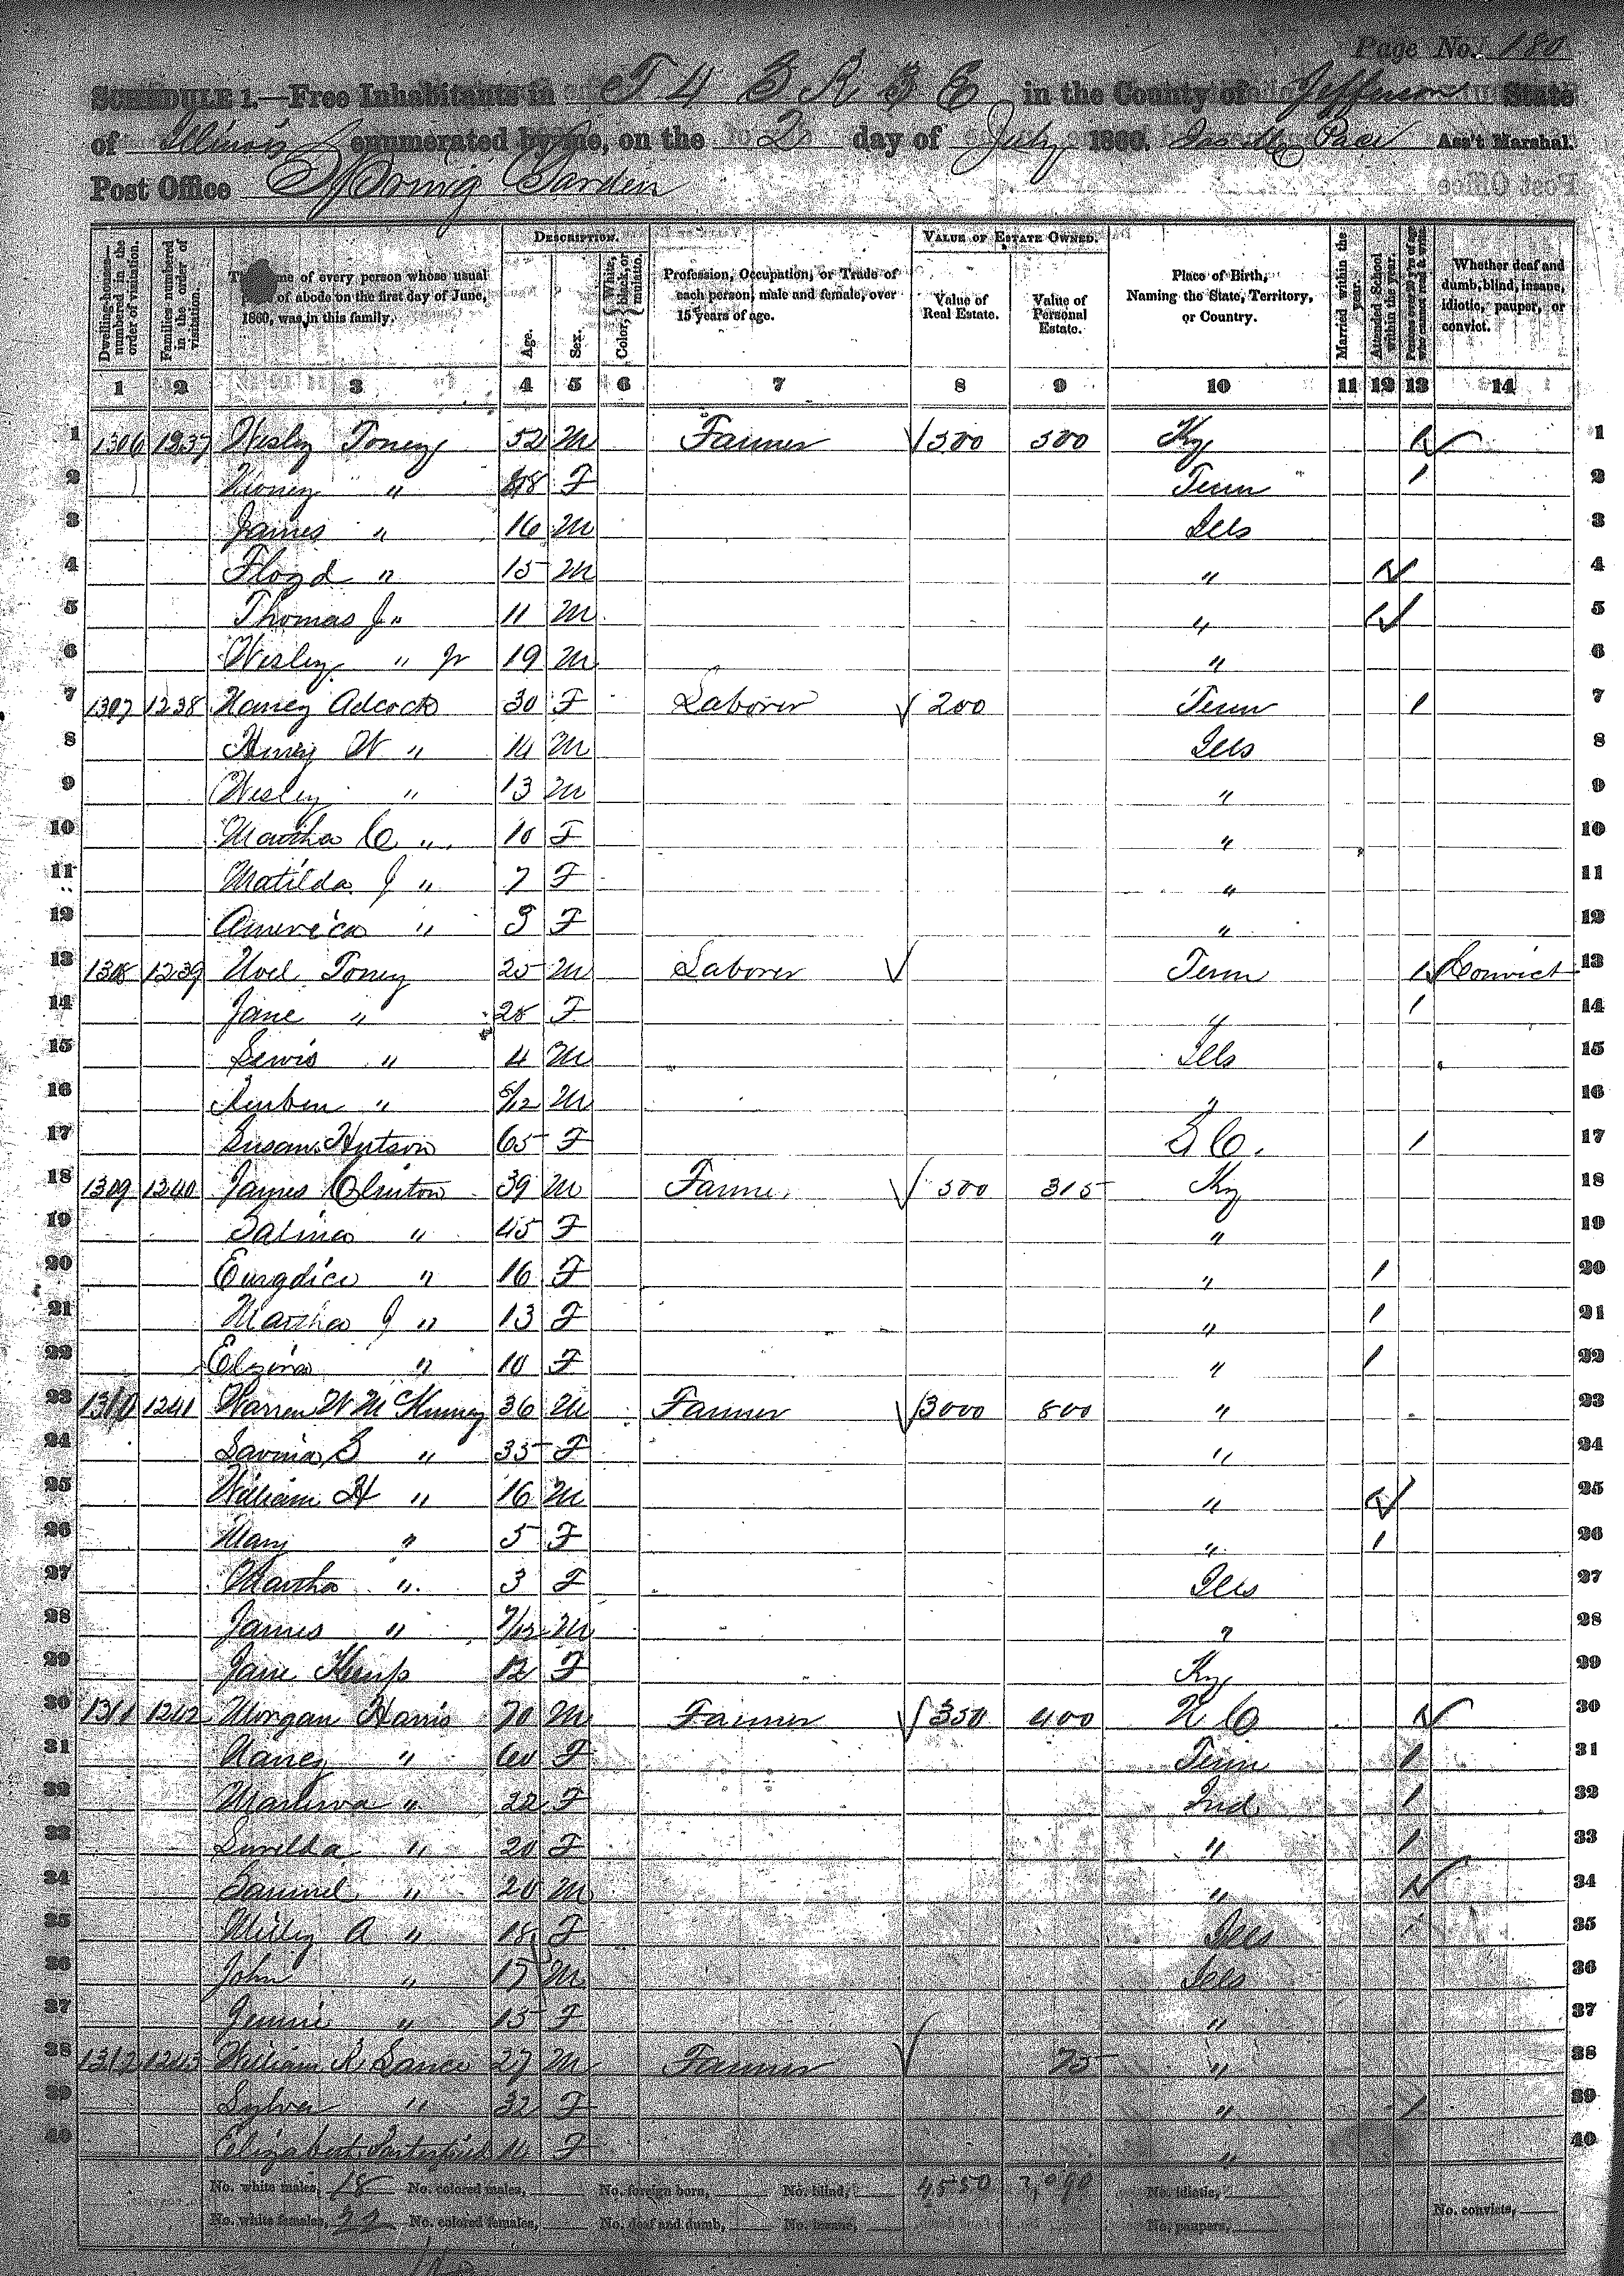 Page No. 180
SCHEDULE 1.—Free Inhabitants in T 4 S R 3 E in the County of Jefferson State
of Illinois enumerated by me, on the 2 day of July 1860. Pace Ass't Marshal.
Post Office Spring Garden
Dwelling-houses—numbered in the order of visitation.
Families numbered in the order of visitation.
The name of every person whose usual place of abode on the first day of June, 1860, was in this family.
DESCRIPTION.
Age.
Sex.
Color, { White, black, or mulatto.
Profession, Occupation, or Trade of each person, male and female, over 15 years of age.
VALUE OF ESTATE OWNED.
Value of Real Estate.
Value of Personal Estate.
Place of Birth, Naming the State, Territory, or Country.
Married within the year.
Attended School within the year.
Persons over 20 y'rs of age who cannot read & write.
Whether deaf and dumb, blind, insane, idiotic, pauper, or convict.
1 2 3 4 5 6 7 8 9 10 11 12 13 14
1 1306 1237 Wesley Toney 52 M Farmer 500 500 Ky 1 1
2 " 48 F Tenn 1 2
3 James " 16 M Ills 3
4 Floyd " 15 M " 1 4
5 Thomas J " 11 M " 1 5
6 Wesley " Jr 19 M " 6
7 1307 1238 Nancy Adcock 30 F Laborer 200 Tenn 1 7
8 Henry W " 14 M Ills 8
9 Wesley " 13 M " 9
10 Martha C " 10 F " 10
11 Matilda J " 7 F " 11
12 America " 5 F " 12
13 1308 1239 Noel Toney 25 M Laborer Tenn 1 Convict 13
14 Jane " 25 F " 1 14
15 Lewis " 4 M Ills 15
16 Reuben " 5/12 M " 16
17 Susan Hutson 65 F S C. 1 17
18 1309 1240 James Clinton 39 M Farmer 500 315 Ky 18
19 Salina " 45 F " 19
20 Eurydice " 16 F " 1 20
21 Martha J " 13 F " 1 21
22 Elzina " 10 F " 1 22
23 1310 1241 Warren W McKinney 36 M Farmer 3000 800 " 23
24 Lavinia S " 35 F " 24
25 William H " 16 M " 1 25
26 Mary " 5 F " 1 26
27 Martha " 3 F Ills 27
28 James " 7/12 M " 28
29 Jane Kemp 12 F Ky 29
30 1311 1242 Morgan Harris 70 M Farmer 350 400 N C 1 30
31 Nancy " 60 F Tenn 1 31
32 " 22 F Ind 1 32
33 Surilda " 20 F " 1 33
34 Samuel " 20 M " 1 34
35 Milly A " 18 F Ills 1 35
36 John " 17 M Ills 36
37 Jennie " 15 F " 37
38 1312 1243 William R Lance 27 M Farmer 75 " 38
39 Sylva " 32 F " 1 39
40 Elizabeth 14 F " 40
No. white males, 18 No. colored males, No. foreign born, No. blind, 4550 2,090 No. idiotic,
No. white females, 22 No. colored females, No. deaf and dumb, No. insane, No. paupers, No. convicts,